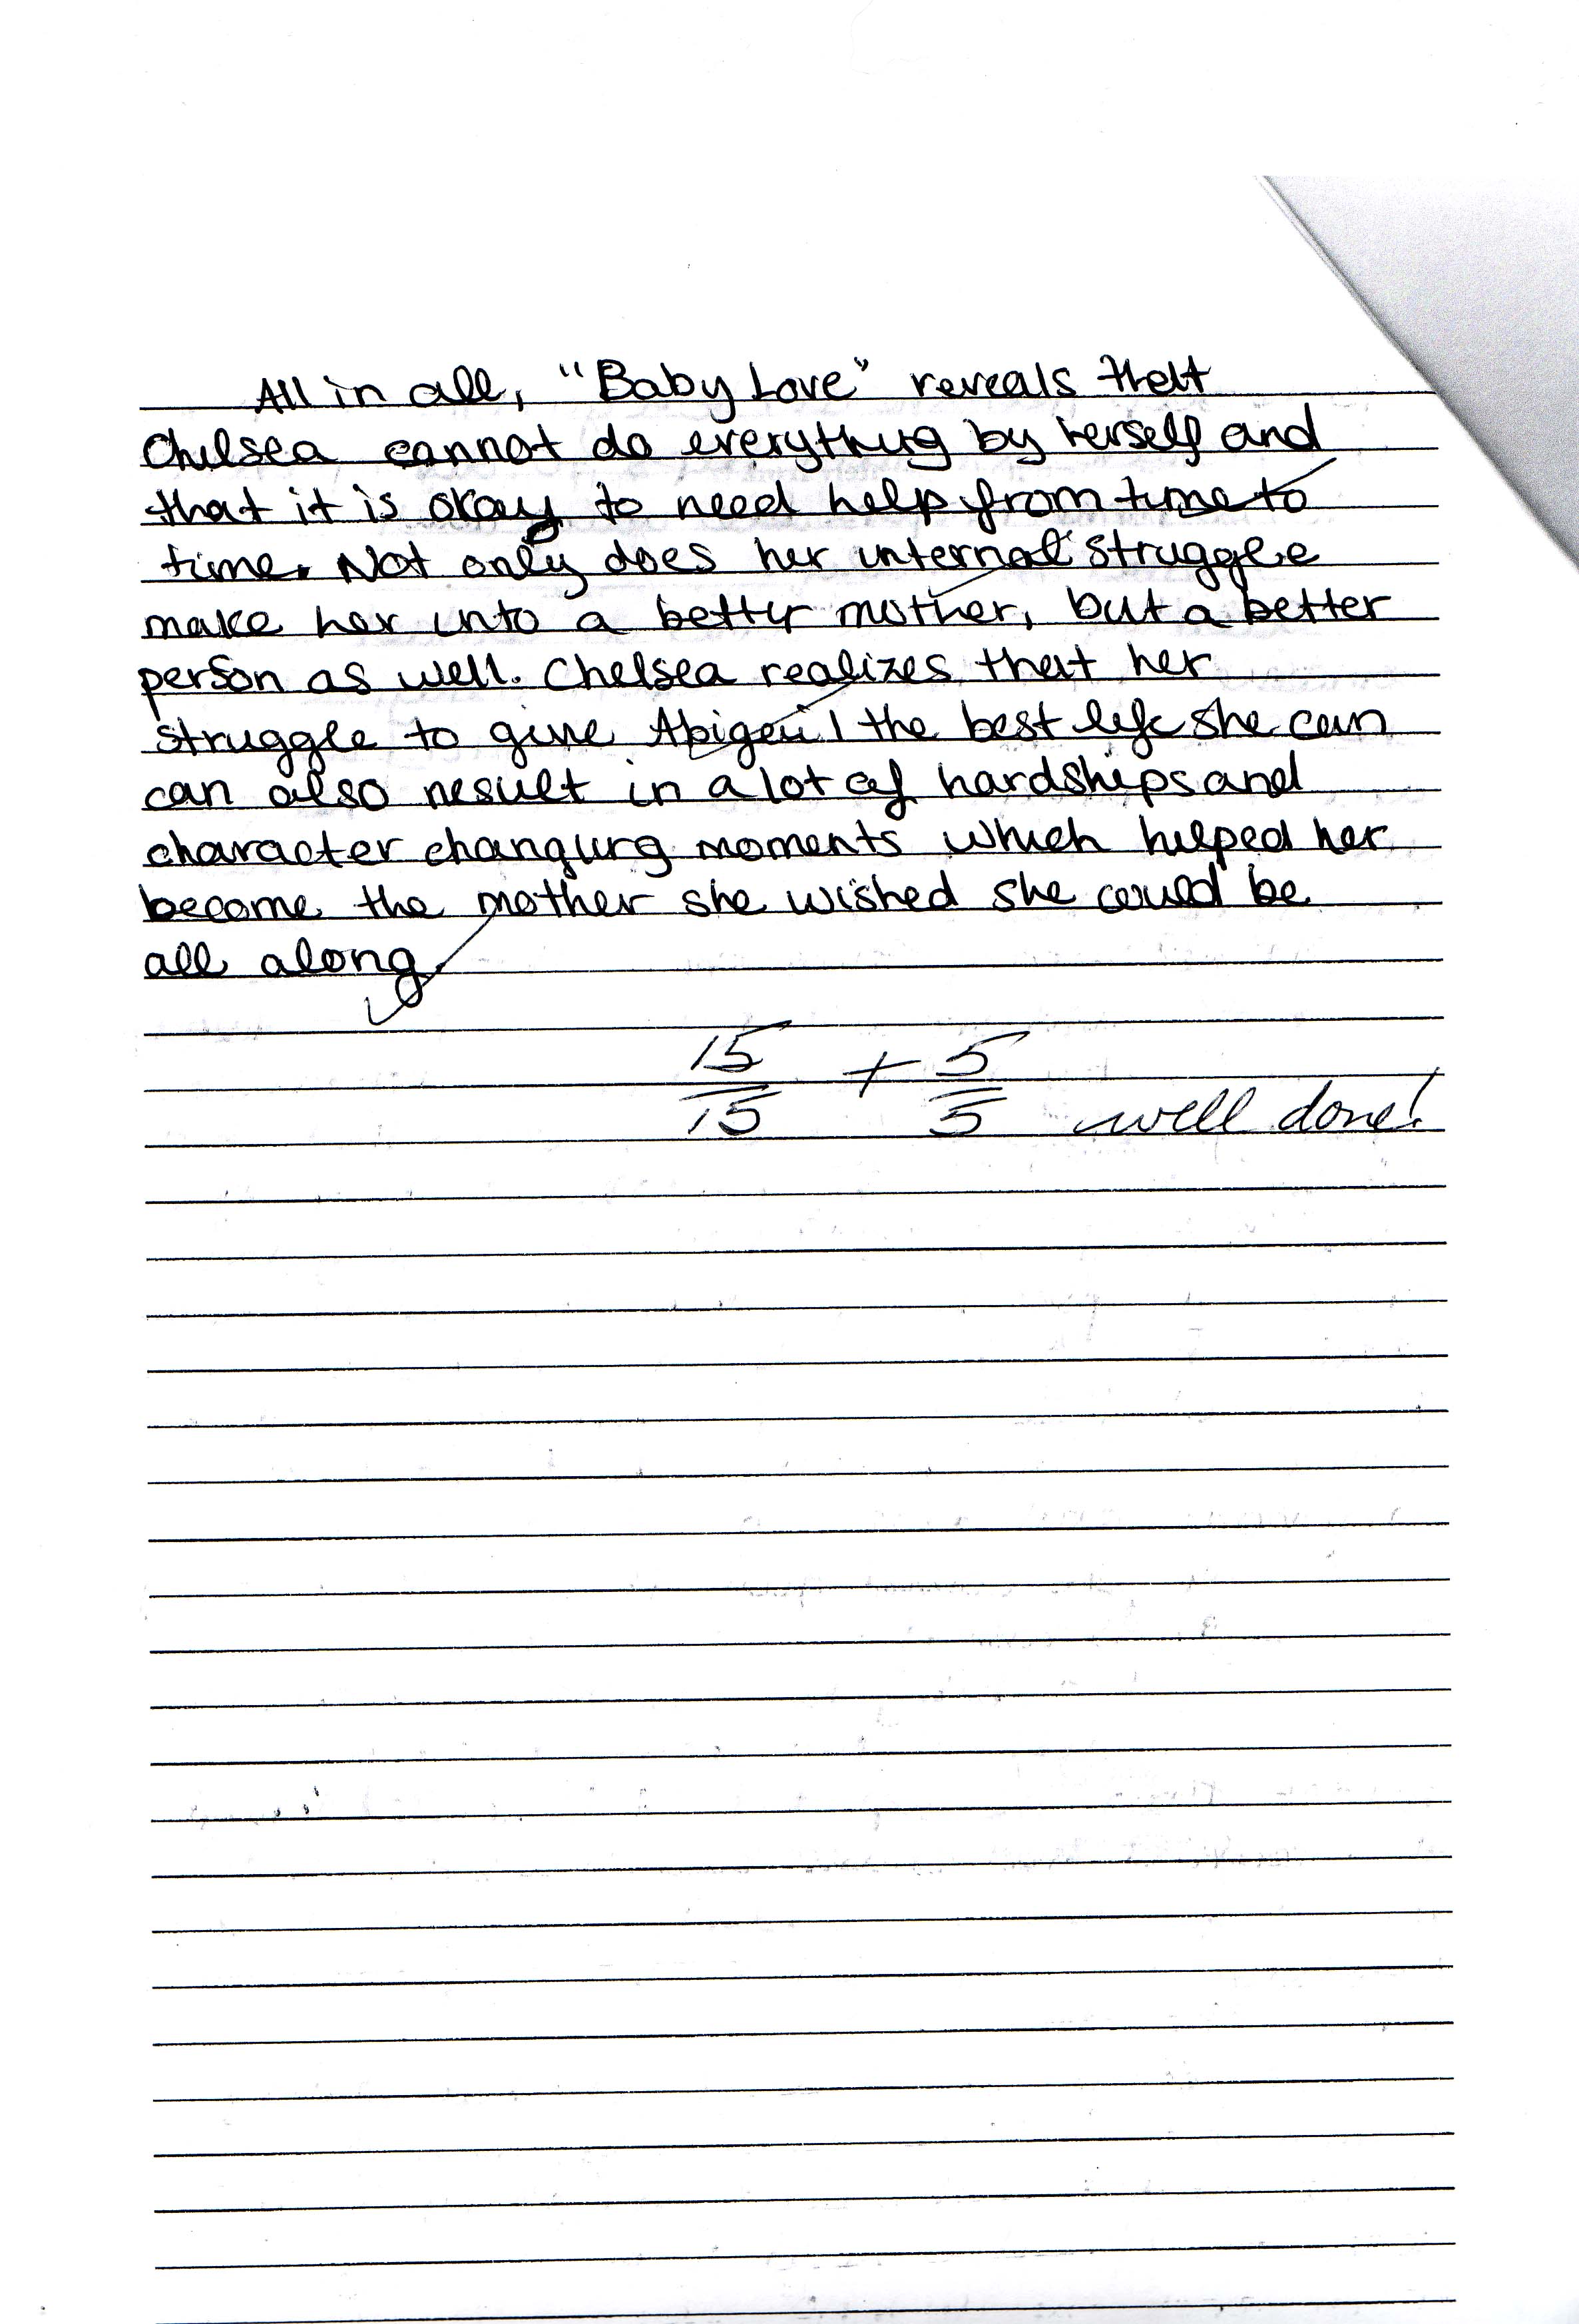 All in all, "Baby Love" reveals that
Chelsea cannot do everything by herself and
that it is okay to need help from time to
time. Not only does her internal struggle
make her into a better mother, but a better
person as well. Chelsea realizes that her
struggle to give Abigail the best life she can
can also result in a lot of hardships and
character changing moments which helped her
become the mother she wished she could be
all along.
15/15 + 5/5 well done!